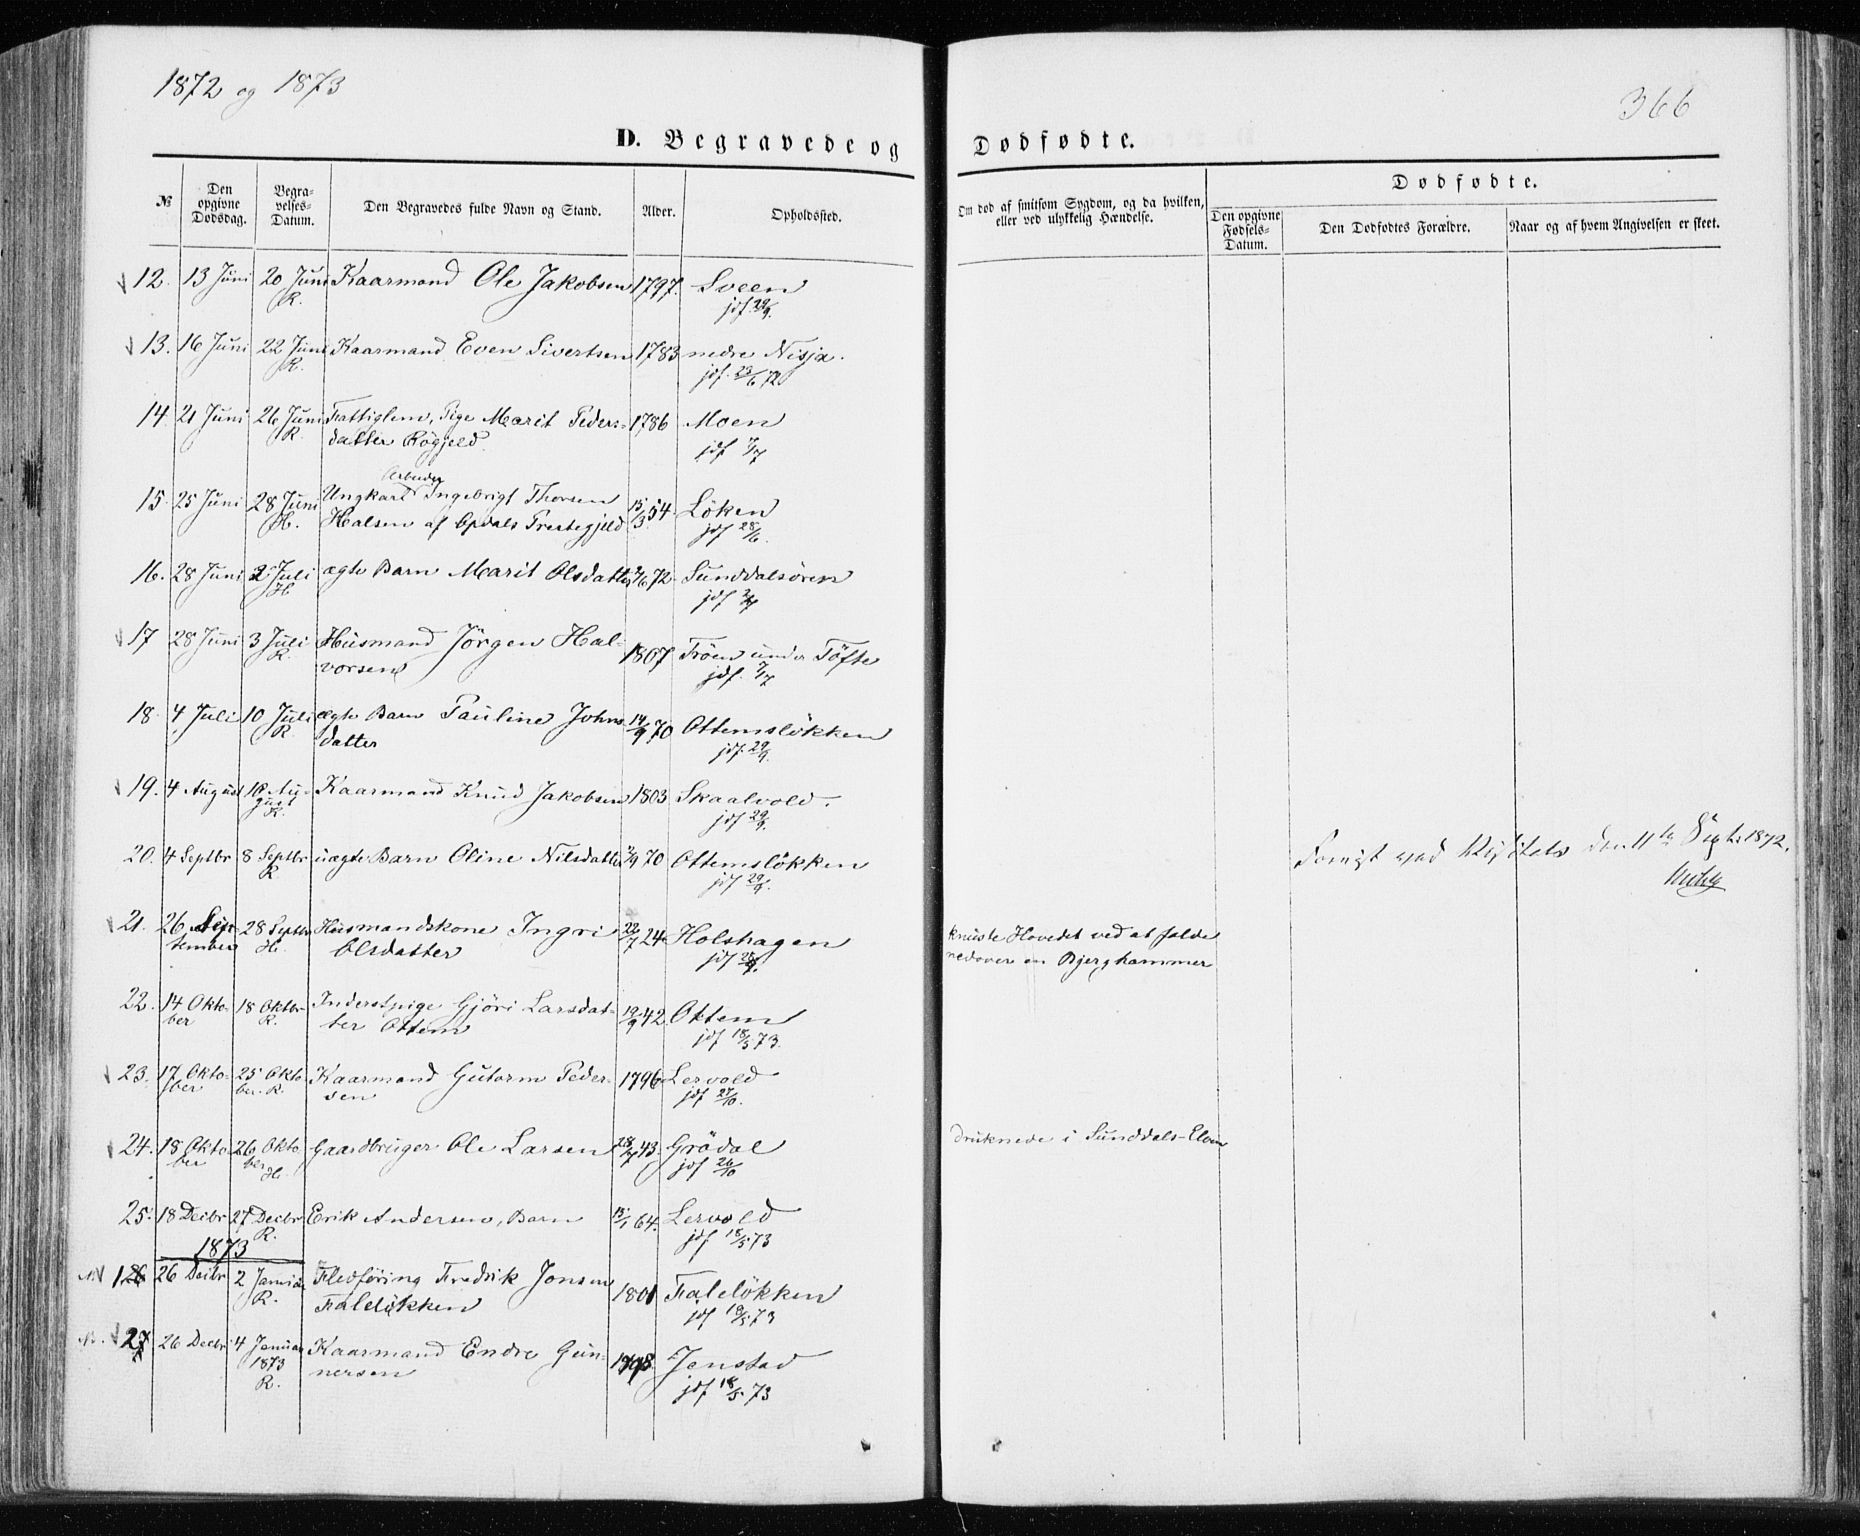 1872 og 1873
366
D. Begravede og Dødfødte.
№
Den opgivne Dødsdag.
Begravelses-Datum.
Den Begravedes fulde Navn og Stand.
Alder.
Opholdssted.
Om død af smitsom Sygdom, og da hvilken, eller ved ulykkelig Hændelse.
Dødfødte.
Den opgivne Fødsels-Datum.
Den Dødfødtes Forældre.
Naar og af hvem Angivelsen er skeet.
12. 13 Juni 20 Juni Kaarmand Ole Jakobsen 1797. Sveen
R. jdf. 29/9.
13. 16 Juni 22 Juni Kaarmand Even Sivertsen 1783 nedre Nisja.
R. jdf. 23/6 72
14. 21 Juni 26 Juni Fattiglem, Pige Marit Peders- 1786 Moen
R. datter Røgjeld. jdf 7/7
Arbeider
15. 25 Juni 28 Juni Ungkarl Ingebrigt Thorsen 15/3 54. Löken
H. Halsen af Opdals Prestegjeld jdf 28/6.
16. 28 Juni 2 Juli ægte Barn Marit Olsdatter /6 72 Sunddalsören
H. jdf 2/7
17 28 Juni 3 Juli Husmand Jörgen Hal- 1807 Tröen under Töfte
R. vorsen jdf. 7/7
18. 4 Juli 10 Juli ægte Barn Pauline Johns- 14/9 70 Ottemslökken
R. datter jdf. 29/9.
19. 4 August 10 Au- Kaarmand Knud Jakobsen 1803 Skaalvold.
gust R. jdf 29/9.
20. 4 Septbr 8 Septbr uægte Barn Oline Nilsdatter /9 70 Ottemslökken
R. jdf 29/9.
den 11te Sept. 1872.
21. 26 Sep- 28 Septbr Husmandskone Ingri 22/7 24 Holshagen knuste Hovedet ved at falde
tember H. Olsdatter jdf 28/9. nedover en Bjerghammer
22. 14 Okto- 18 Oktbr Inderstpige Gjöri Larsdat- 19/9 42 Ottem
ber R. ter Ottem jdf 18/5 73.
23. 17 Okto- 25 Okto- Kaarmand Gutorm Peder- 1796 Lervold
ber ber. R. sen jdf 27/10.
24. 18 Okto- 26 Okto- Gaardbruger Ole Larsen 28/7 43. Grödal druknede i Sunddals-Elven
ber ber H. jdf 26/10
25. 18 Decbr 27 Decbr Erik Andersen, Barn 15/1 64. Lervold
R. jdf. 18/5 73
1873
1 26 Decbr 2 Januar Flodföring Fredrik Jonsen 1801 Falelökken
R. Falelökken jdf 18/5 73
2 26 Decbr 4 Januar Kaarmand Endre Gun- 1798. Jenstad
1873 R. nersen jdf 18/5 73